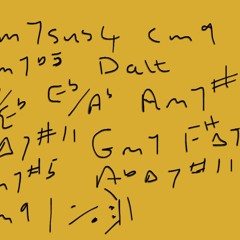 m7sus4 cm9
m7b5 Dalt
/E Eb/Ab Am7#
Δ7#11 Gm7 F#Δ7
m7#5 AbΔ7#11
m9 | ·/· :||